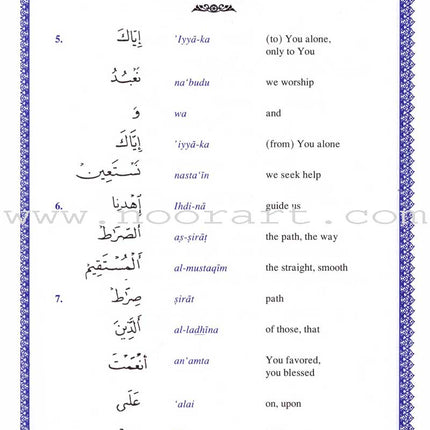 5. إِيَّاكَ 'Iyyā-ka (to) You alone,
only to You
نَعْبُدُ na'budu we worship
وَ wa and
إِيَّاكَ 'iyyā-ka (from) You alone
نَسْتَعِينُ nasta'īn we seek help
6. اَهْدِنَا Ihdi-nā guide us
www.noorart.com
اَلصِّرَاطَ aṣ-ṣirāṭ the path, the way
اَلْمُسْتَقِيمَ al-mustaqīm the straight, smooth
7. صِرَاطَ ṣirāṭ path
اَلَّذِينَ al-ladhīna of those, that
أَنْعَمْتَ an'amta You favored,
you blessed
عَلَى 'alai on, upon